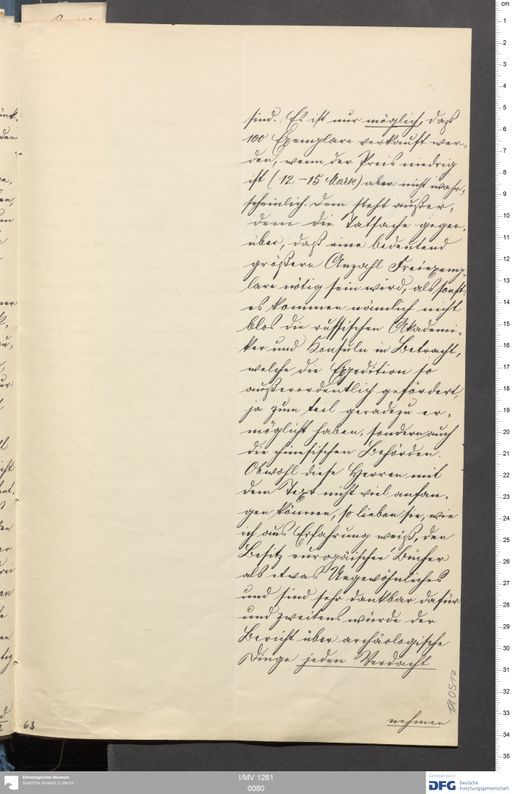 sind. Es ist nur möglich, daß
100 Exemplare verkauft wer-
den, wenn der Preis niedrig
ist (12–15 Mark) aber nicht wahr-
scheinlich. Dem steht außer-
dem die Tatsache gegen-
über, daß eine bedeutend
größere Anzahl Freiexem-
plare nötig sein wird, als sonst:
es kommen nämlich nicht
blos die russischen Akademi-
ker und Konsuln in Betracht,
welche die Expedition so
außerordentlich gefördert,
ja zum teil geradezu er-
möglicht haben, sondern auch
die chinesischen Behörden.
Obwohl diese Herren mit
dem Text nicht viel anfan-
gen können, so lieben sie, wie
ich aus Erfahrung weiß, den
Besitz europäischer Bücher
als etwas Ungewöhnliches
und sind sehr dankbar dafür
und zweitens würde der
Bericht über archäologische
Dinge jeden Verdacht
nehmen
63
Ethnologisches Museum
Staatliche Museen zu Berlin
I/MV 1261
0080
DFG Deutsche
Forschungsgemeinschaft